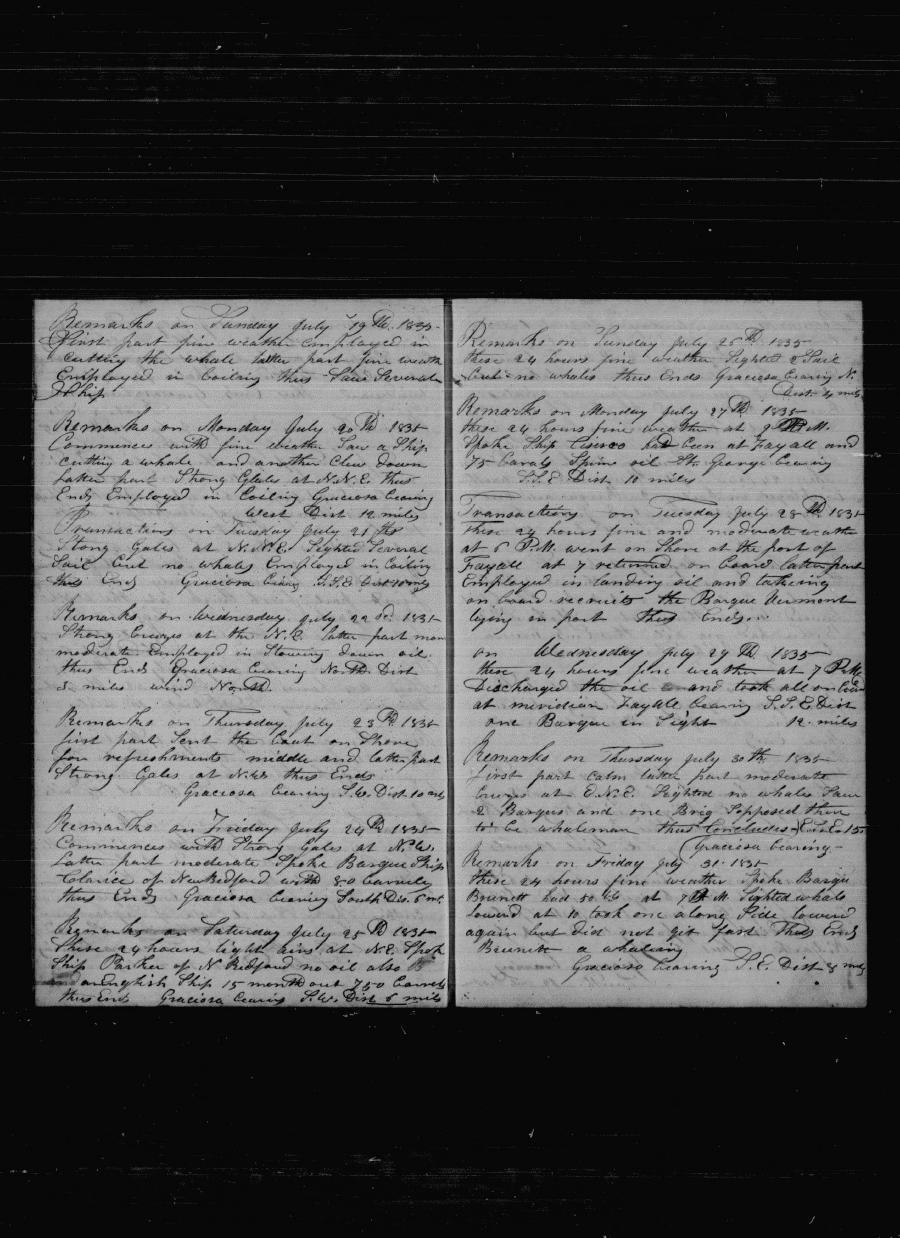 Remarks on Sunday July 19th 1835
First part fine weather employed in
cutting the whale latter part fine weath
Employed in boiling thus Saw Several
Ship
Remarks on Monday July 20th 1835
Commences with fine weather Saw a Ship
cutting a whale and another Clew down
Latter part Strong Gales at N.N.E. thus
Ends Employed in Boiling Graciosa bearing
West Dist 12 miles
Transactions on Tuesday July 21th
Stong Gales at N.N.E. Sighted Several
Sail but no whales Employed in boiling
thus Ends Graciosa bearing S.S.E Dist 10 mils
Remarks on Wednesday July 22d 1835
Strong breezes at the N.E. latter part mor
moderate Employed in Stowing down oil
thus Ends Graciosa bearing North Dist
8 miles wind North
Remarks on Thursday July 23th 1835
first part Sent the boat on Shore
for refreshments middle and latter part
Strong Gales at thus Ends
Graciosa bearing S.W. Dist 10 mls
Remarks on Friday July 24th 1835
Commences with Strong Gales at
Latter part moderate Spoke Barque Ship
Clarice of New Bedford with 80 barrels
thus Ends Graciosa bearing South Dis. 6 ms
Remarks on Saturday July 25th 1835
These 24 hours light airs at N.E. Spok
Ship Parker of N Bedford no oil also
an English Ship 15 month out 750 barrels
thus Ends Graciosa bearing S.W. Dist 6 mils
Remarks on Sunday July 26th 1835
these 24 hours fine weather Sighted 2 Sail
but no whales thus Ends Graciosa bearing N.
Dist 4 mils
Remarks on Monday July 27th 1835
these 24 hours fine weather at P.M.
Spoke Ship had been at Fayall and
75 barels Spirm oil St. George bearing
S.S.E Dist 10 miles
Transactions on Tuesday July 28th 1835
these 24 hours fine and moderate weath
at 6 P.M. went on Shore at the port of
Fayall at 7 returned on board latter part
Employed in landing oil and takeing
on board recruits the Barque Vermont
lying in port thus Ends
on Wednesday July 29th 1835
these 24 hours fine weather at 7 P.M.
Discharged the oil and took all on board
at meridian Fayall bearing S.S.E. Dist
one Barque in Sight 12 miles
Remarks on Thursday July 30th 1835
First part calm latter part moderate
breezes at E.N.E. Sighted no whales Saw
2 Barques and one Brig Sopposed them
to be whaleman thus Concludes
Graciosa bearing
Remarks on Friday July 31 1835
these 24 hours fine weather Spoke Barque
Brunett had 50 at 7 P.M. Sighted whale
loward at 10 took one along Side loward
again but did not git fast thus Ends
Brunett a whaleing
Gracioso bearing S.E. Dist 8 mils